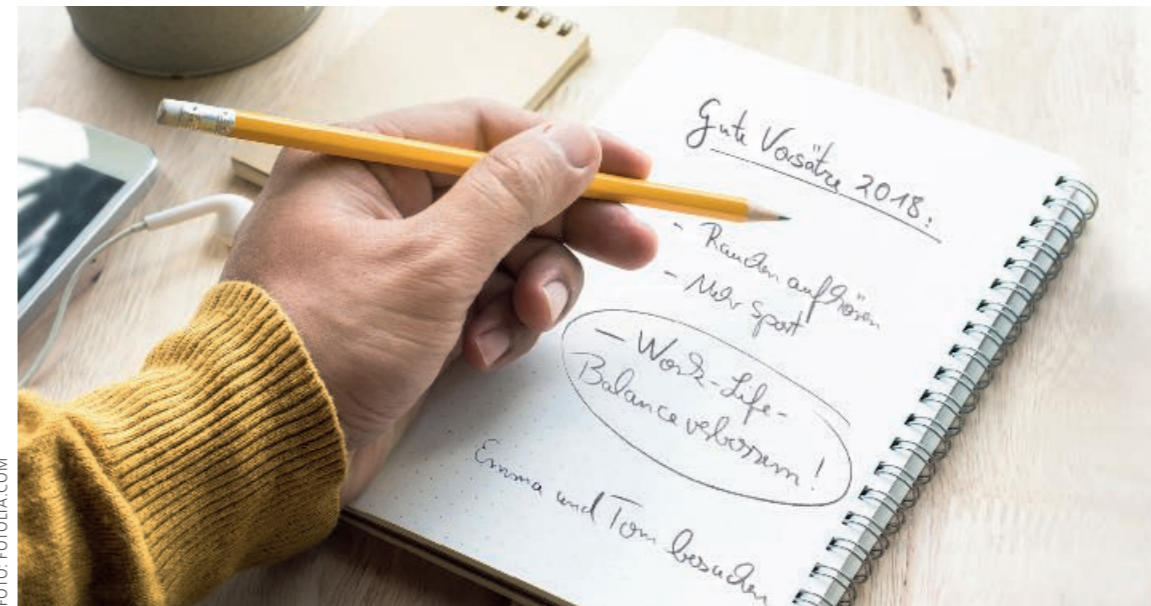 Gute Vorsätze 2018:
- Rauchen aufhören
- Mehr Sport
- Work-Life-
Balance verbessern!
Emma und Tom besuchen
FOTO: FOTOLIA.COM